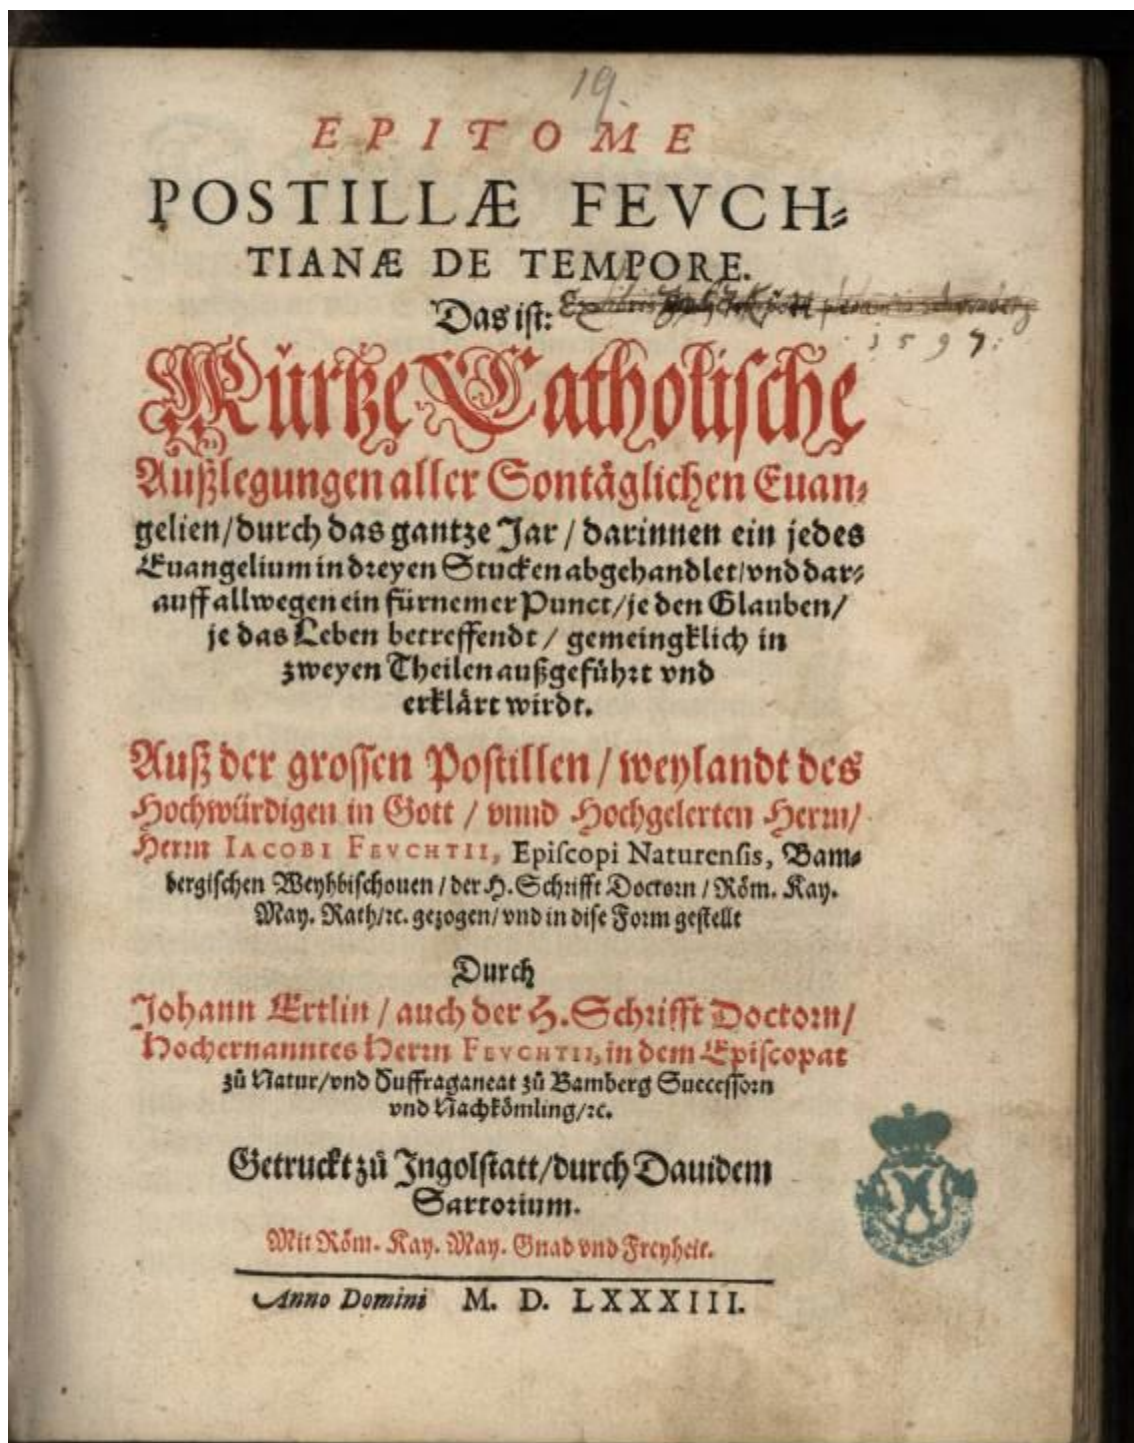 19.
EPITOME
POSTILLÆ FEVCH⸗
TIANÆ DE TEMPORE.
Das ist:
1597.
Kurtze Catholische
Außlegungen aller Sontäglichen Euan⸗
gelien/durch das gantze Jar/ darinnen ein jedes
Euangelium in dreyen Stucken abgehandlet/vnd dar⸗
auff allwegen ein fürnemer Punct/je den Glauben/
je das Leben betreffendt/ gemeingklich in
zweyen Theilen außgeführt vnd
erklärt wirdt.
Auß der grossen Postillen/ weylandt des
Hochwürdigen in Gott/ vnnd Hochgelerten Herrn/
Herrn IACOBI FEVCHTII, Episcopi Naturensis, Bam⸗
bergischen Weyhbischouen/ der H. Schrifft Doctorn/ Röm. Kay.
May. Rath/ꝛc. gezogen/ vnd in dise Form gestellt
Durch
Johann Ertlin/ auch der H. Schrifft Doctorn/
Hochernanntes Herrn FEVCHTII, in dem Episcopat
zů Natur/vnd Suffraganeat zů Bamberg Successorn
vnd Nachkömling/ꝛc.
Getruckt zů Ingolstatt/durch Dauidem
Sartorium.
Mit Röm. Kay. May. Gnad vnd Freyheit.
Anno Domini M. D. LXXXIII.